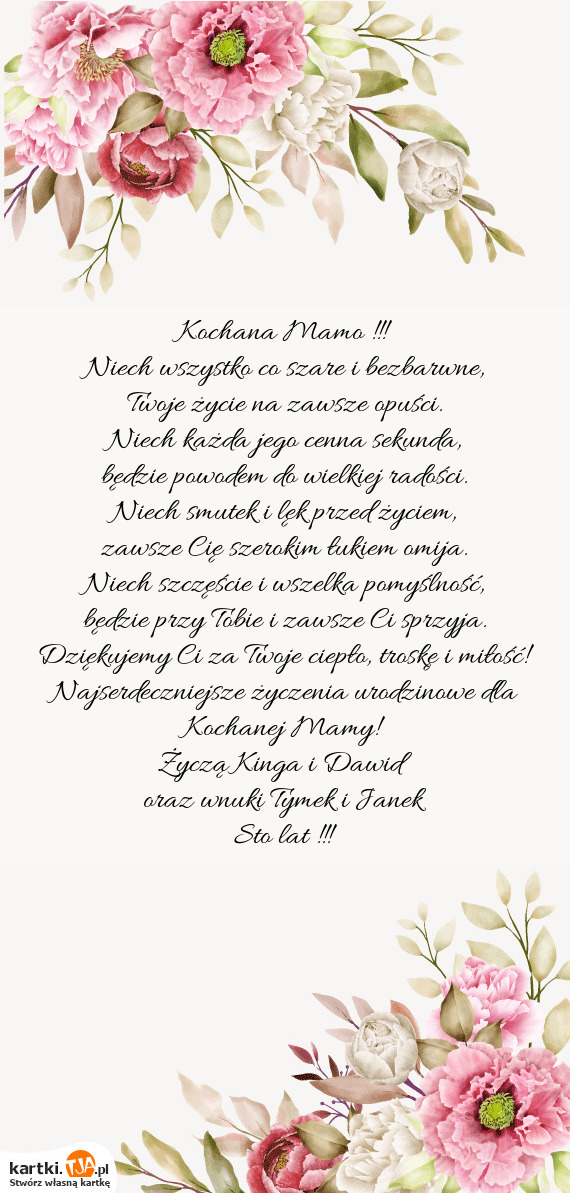 Kochana Mamo !!!
Niech wszystko co szare i bezbarwne,
Twoje życie na zawsze opuści.
Niech każda jego cenna sekunda,
będzie powodem do wielkiej radości.
Niech smutek i lęk przed życiem,
zawsze Cię szerokim łukiem omija.
Niech szczęście i wszelka pomyślność,
będzie przy Tobie i zawsze Ci sprzyja.
Dziękujemy Ci za Twoje ciepło, troskę i miłość!
Najserdeczniejsze życzenia urodzinowe dla
Kochanej Mamy!
Życzą Kinga i Dawid
oraz wnuki Tymek i Janek
Sto lat !!!
kartki.TJA.pl
Stwórz własną kartkę